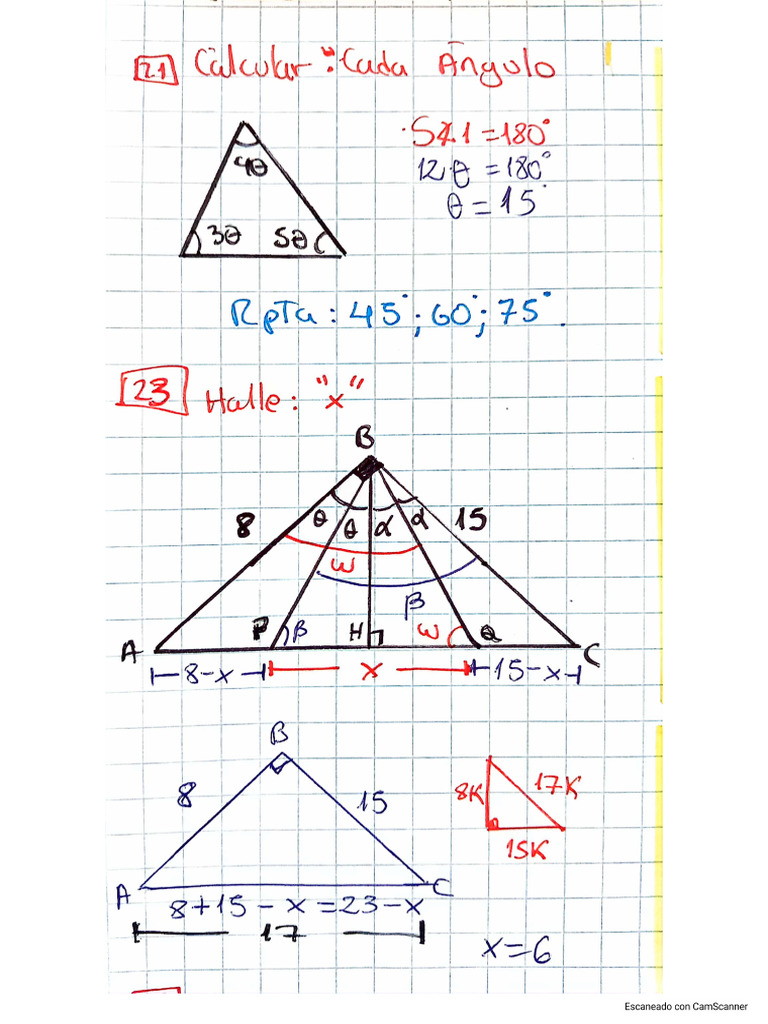 21 Calcular: Cada Ángulo
4θ
3θ 5θ
S∡1 = 180°
12·θ = 180°
θ = 15°
Rpta: 45°; 60°; 75°.
23 Halle: "x"
B
8 θ θ α α 15
ω
β
A P β H ω Q C
8-x x 15-x
B
8 15
A C
8+15-x=23-x
17
8K 17K
15K
x=6
Escaneado con CamScanner